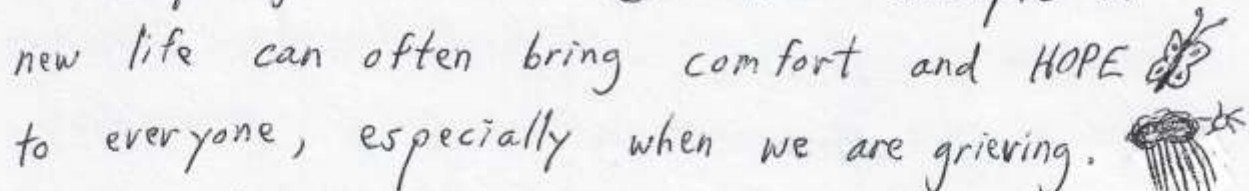 new life can often bring comfort and HOPE
to everyone, especially when we are grieving.